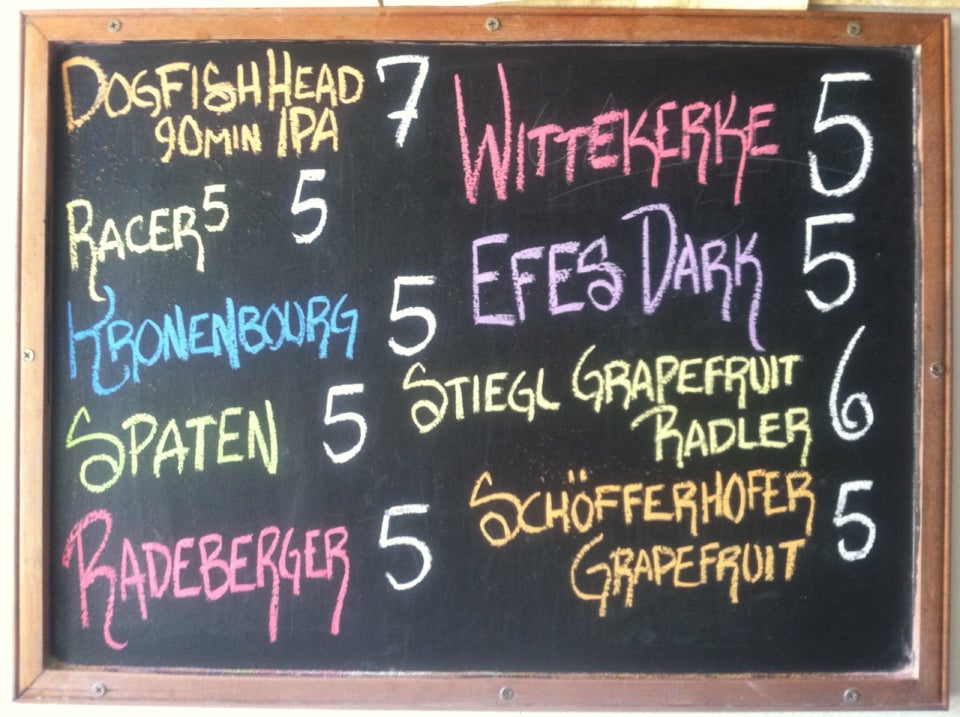 DOGFISH HEAD 7
90 MIN IPA
RACER 5 5
KRONENBOURG 5
SPATEN 5
RADEBERGER 5
WITTEKERKE 5
EFES DARK 5
STIEGL GRAPEFRUIT 6
RADLER
SCHÖFFERHOFER 5
GRAPEFRUIT